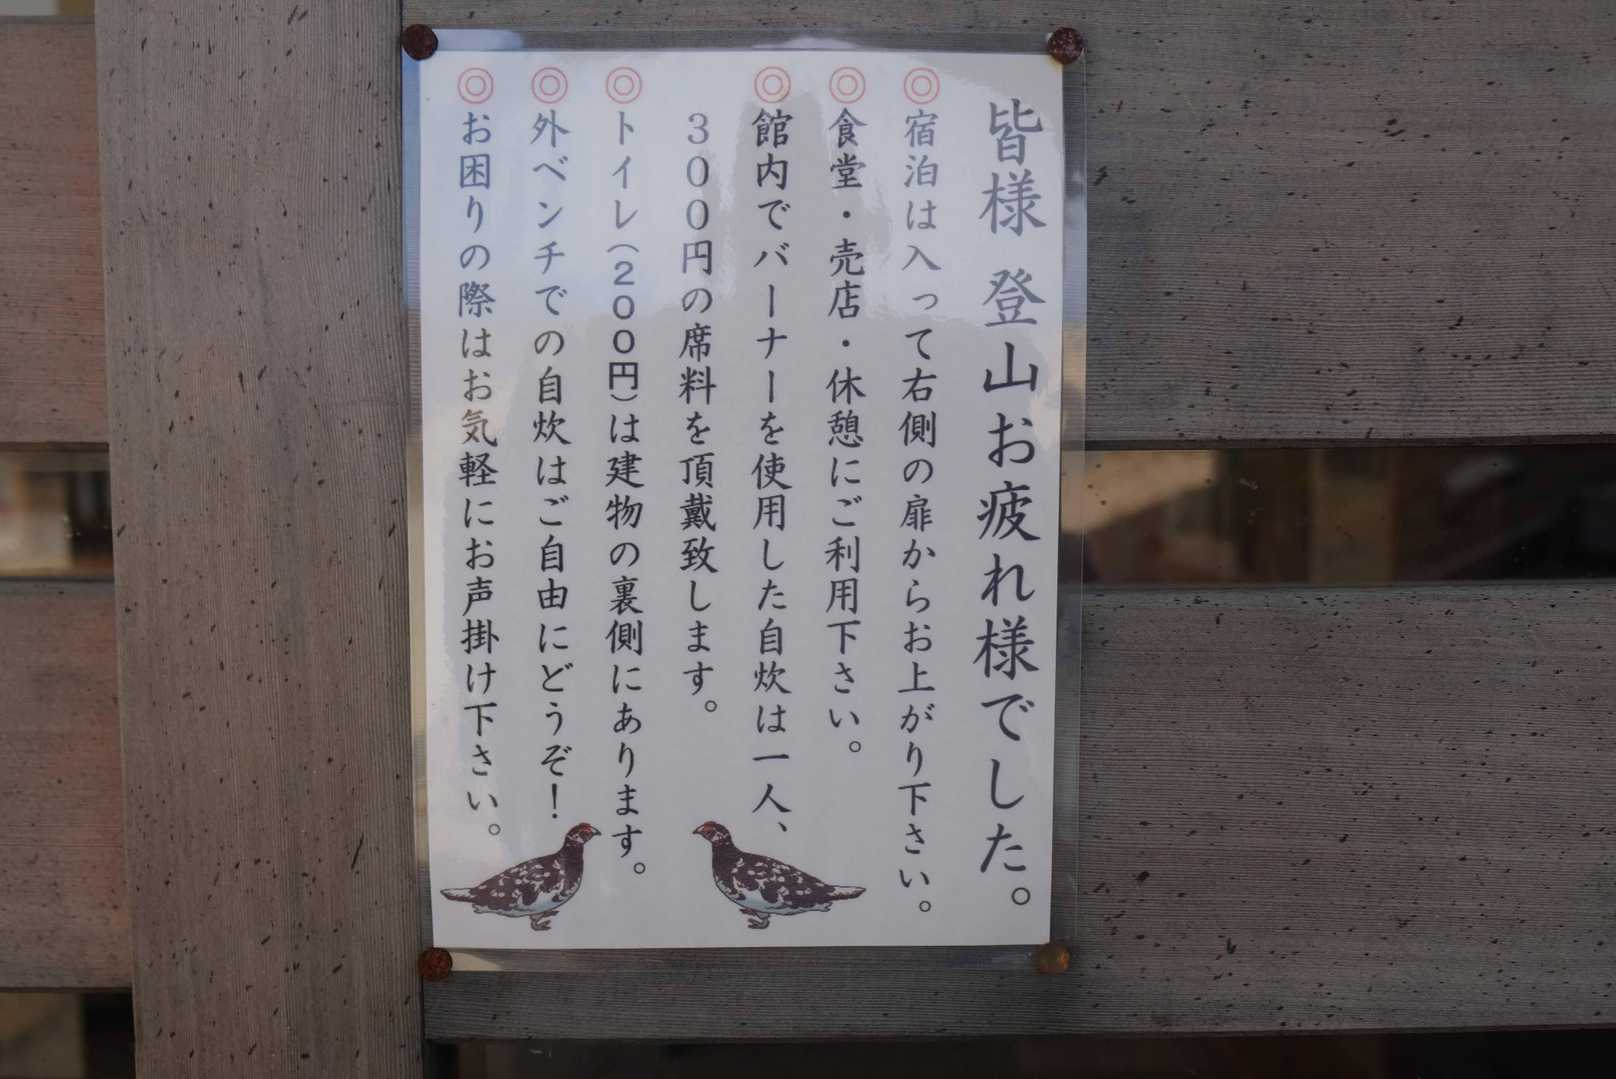 皆様 登山お疲れ様でした。
◎宿泊は入って右側の扉からお上がり下さい。
◎食堂・売店・休憩にご利用下さい。
◎館内でバーナーを使用した自炊は一人、
３００円の席料を頂戴致します。
◎トイレ（２００円）は建物の裏側にあります。
◎外ベンチでの自炊はご自由にどうぞ！
◎お困りの際はお気軽にお声掛け下さい。